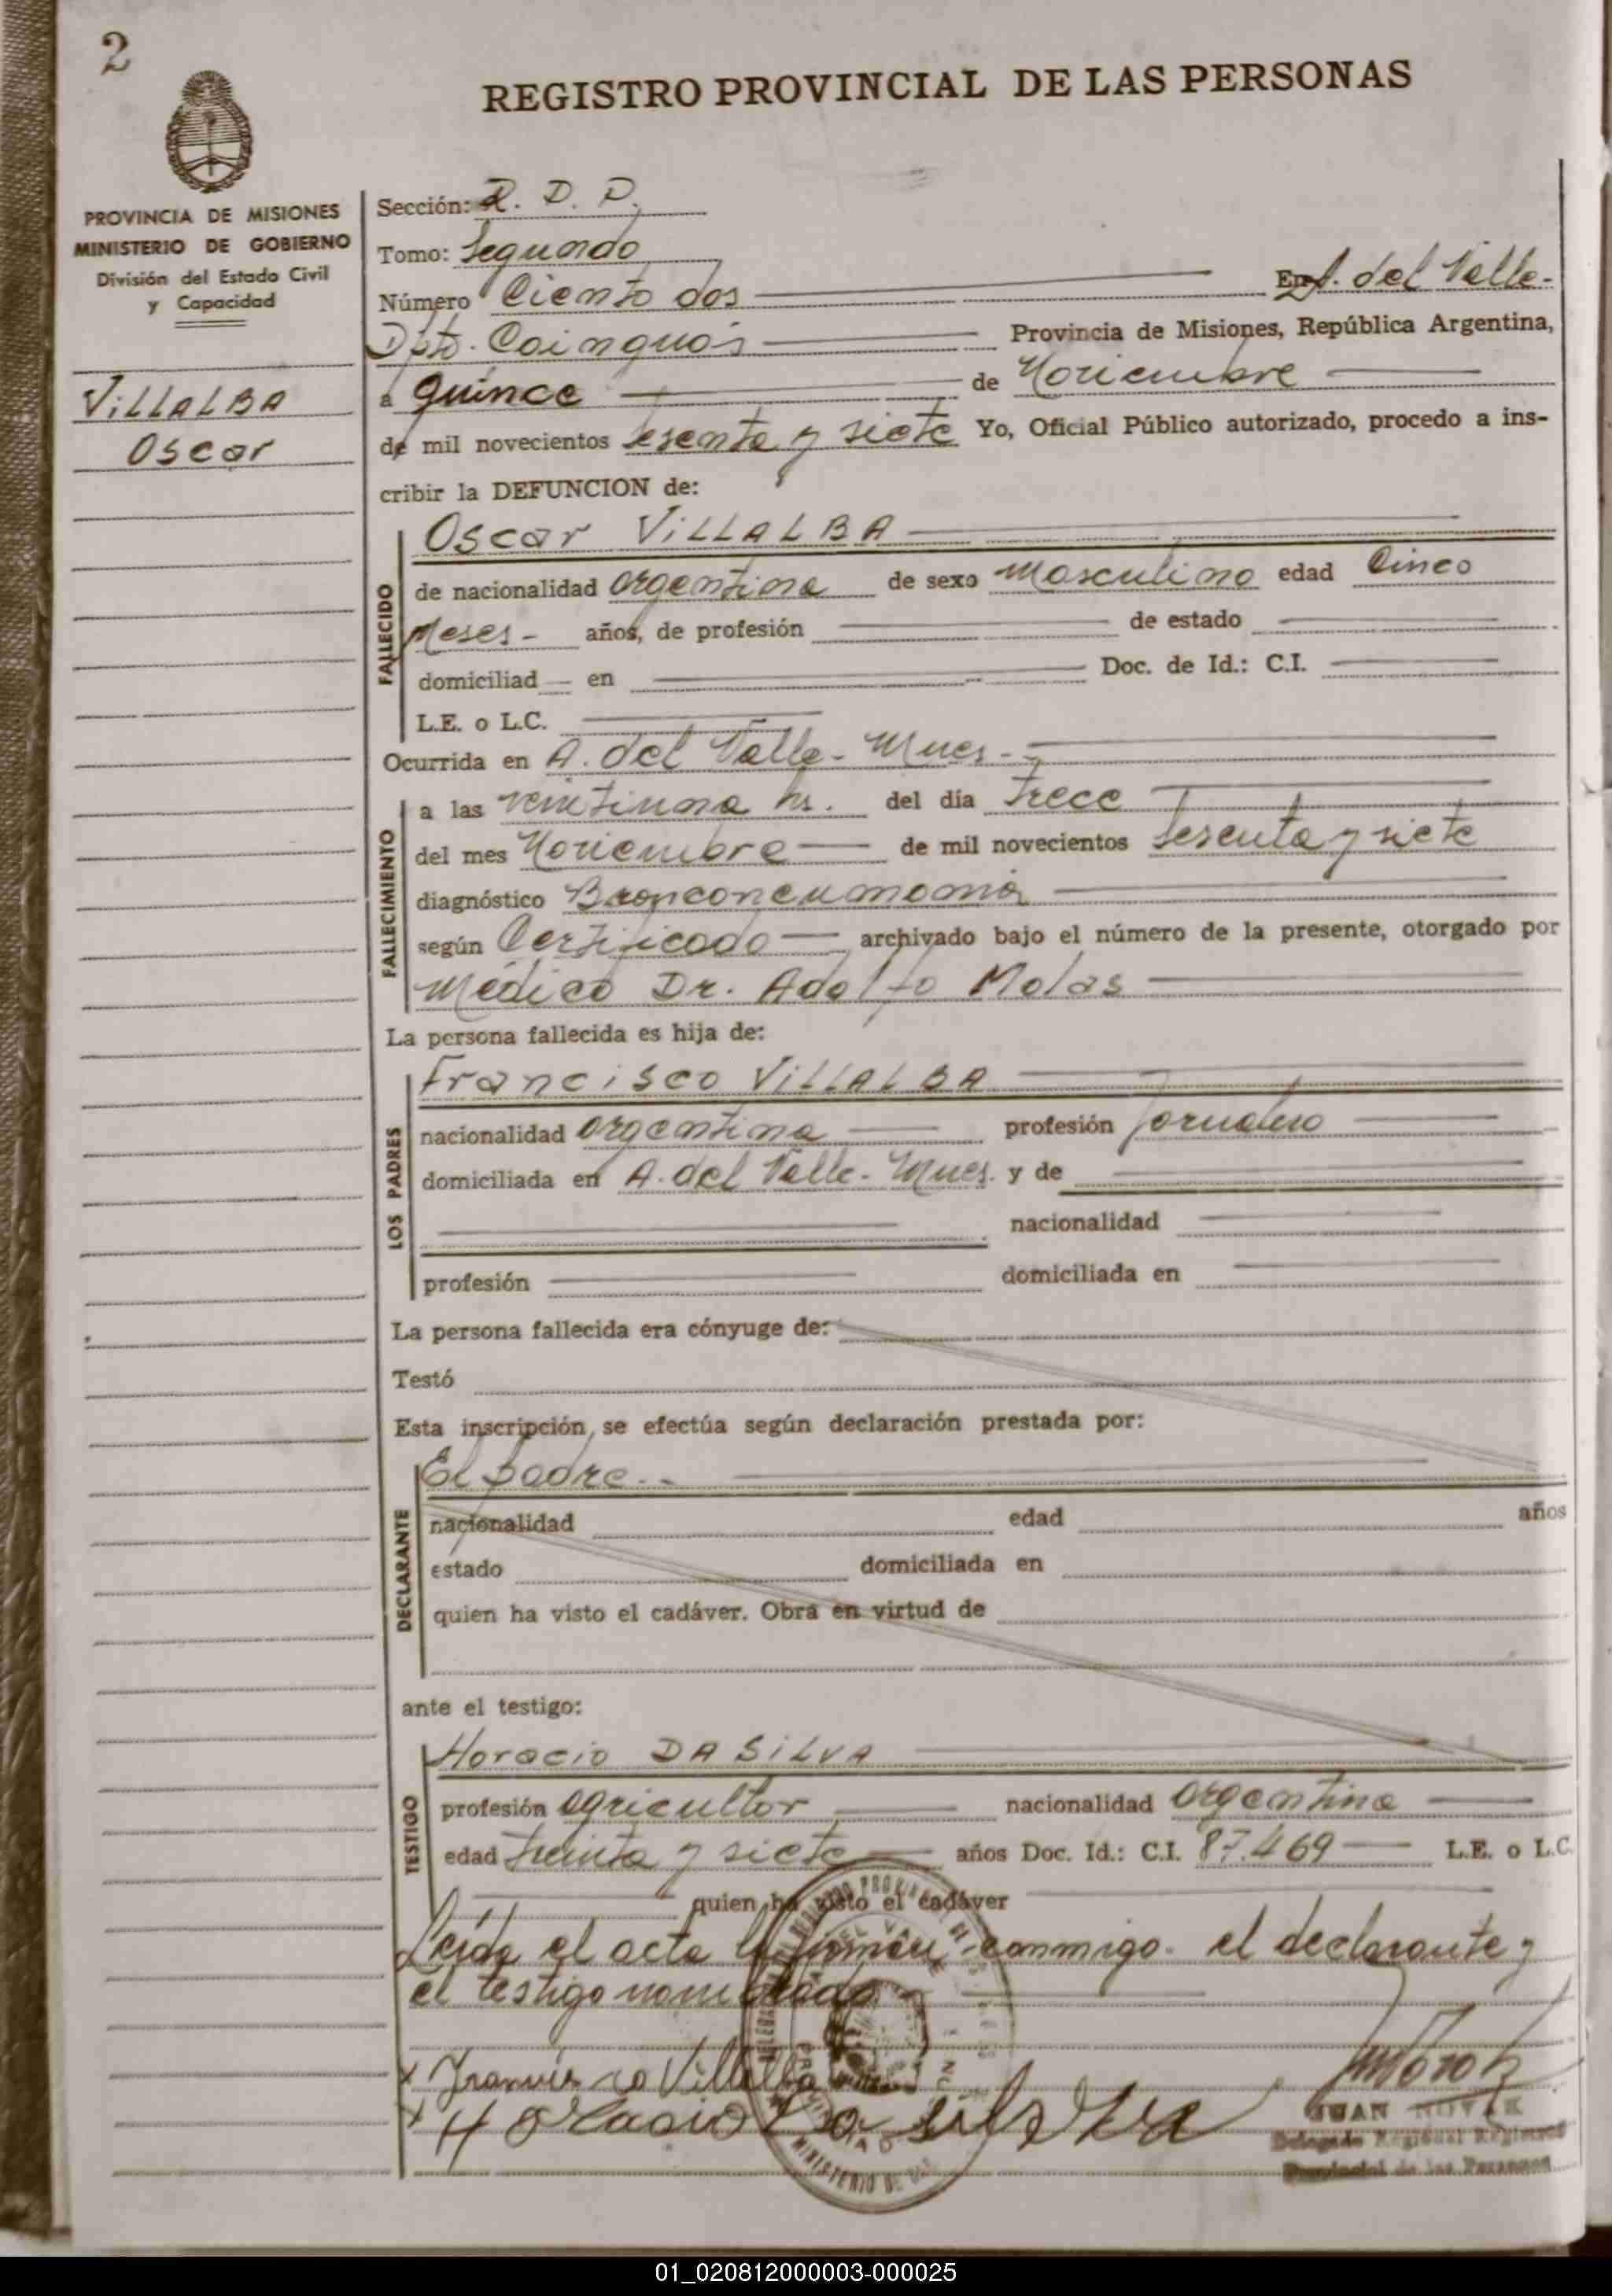 2
REGISTRO PROVINCIAL DE LAS PERSONAS
PROVINCIA DE MISIONES
MINISTERIO DE GOBIERNO
División del Estado Civil
y Capacidad
VILLALBA
Oscar
Sección: R. D. P.
Tomo: Segundo
Número Ciento dos En A. del Valle-
Dpto. Cainguás Provincia de Misiones, República Argentina,
a quince de Noviembre
de mil novecientos sesenta y siete Yo, Oficial Público autorizado, procedo a ins-
cribir la DEFUNCION de:
FALLECIDO
Oscar VILLALBA
de nacionalidad argentina de sexo Masculino edad Cinco
Meses- años, de profesión de estado
domiciliad en Doc. de Id.: C.I.
L.E. o L.C.
Ocurrida en A. del Valle- Mnes.-
FALLECIMIENTO
a las veintiuna hs. del día trece
del mes Noviembre de mil novecientos sesenta y siete
diagnóstico Bronconeumonia
según Certificado archivado bajo el número de la presente, otorgado por
Médico Dr. Adolfo Molas
La persona fallecida es hija de:
LOS PADRES
Francisco VILLALBA
nacionalidad argentina profesión Jornalero
domiciliada en A. del Valle- Mnes. y de
nacionalidad
profesión domiciliada en
La persona fallecida era cónyuge de:
Testó
Esta inscripción, se efectúa según declaración prestada por:
DECLARANTE
El padre.-
nacionalidad edad años
estado domiciliada en
quien ha visto el cadáver. Obra en virtud de
ante el testigo:
TESTIGO
Horacio DA SILVA
profesión agricultor nacionalidad argentina
edad treinta y siete años Doc. Id.: C.I. 87.469 L.E. o L.C.
quien ha visto el cadáver
Leída el acta la firman conmigo el declarante y
el testigo nombrado
Francisco Villalba
Horacio Da Silva
JUAN NOVAK
Delegado Regional Registro
Provincial de las Personas
01_020812000003-000025